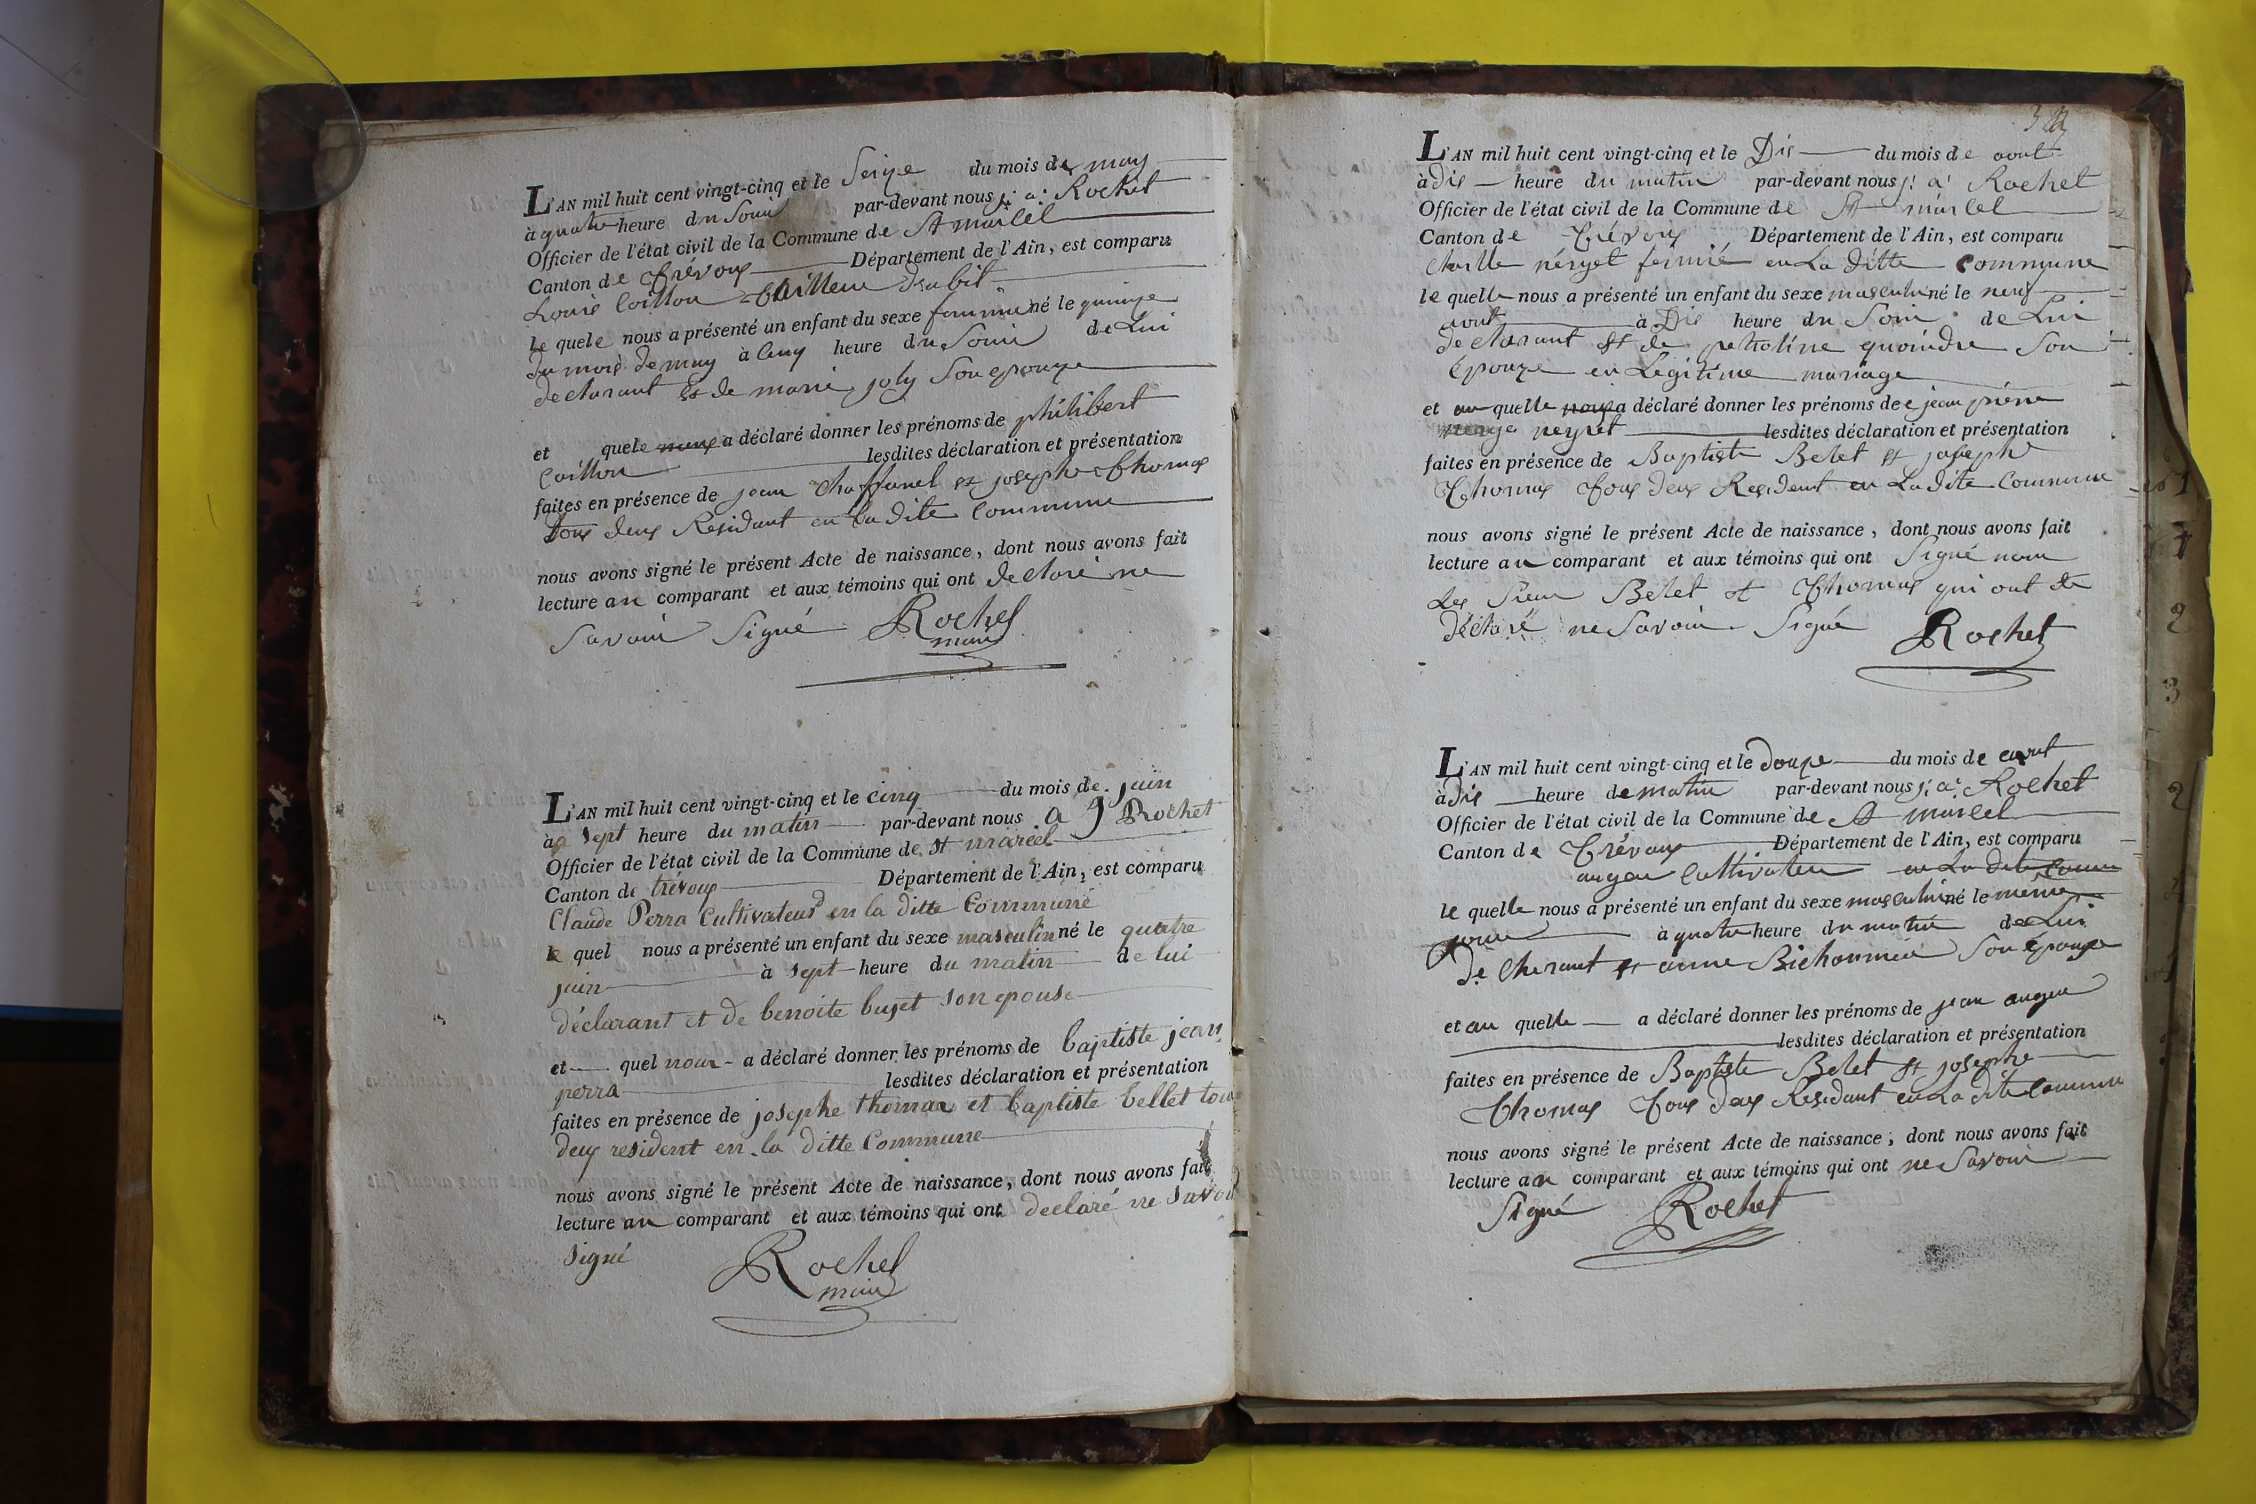 L'AN mil huit cent vingt-cinq et le Seize du mois de may
à quatre heure du Soir par-devant nous j. a. Rochet
Officier de l'état civil de la Commune de St marcel
Canton de trévoux Département de l'Ain, est comparu
Louis Coillon tailleur
le quele nous a présenté un enfant du sexe né le quinze
du mois de may à cinq heure du Soir de Lui
declarant et de marie joly Son epouze
et quele nous a déclaré donner les prénoms de philibert
Coillon lesdites déclaration et présentation
faites en présence de jean Chaffanel et josephe thomas
tous deux Residant en La dite commune
nous avons signé le présent Acte de naissance, dont nous avons fait
lecture au comparant et aux témoins qui ont declaré ne
Savoir Signé Rochet
maire
L'AN mil huit cent vingt-cinq et le cinq du mois de juin
à sept heure du matin par-devant nous a J Rochet
Officier de l'état civil de la Commune de St marcel
Canton de trévoux Département de l'Ain, est comparu
Claude Perra Cultivateur en la ditte Commune
le quel nous a présenté un enfant du sexe masculin né le quatre
juin à sept heure du matin de lui
déclarant et de benoite buget son epouse
et quel nour a déclaré donner les prénoms de baptiste jean
perra lesdites déclaration et présentation
faites en présence de josephe thomas et baptiste bellet tous
deux resident en la ditte Commune
nous avons signé le présent Acte de naissance, dont nous avons fait
lecture au comparant et aux témoins qui ont declaré ne savoir
signé Rochet
maire
L'AN mil huit cent vingt-cinq et le Dis du mois de aout
à dis heure du matin par-devant nous j. a. Rochet
Officier de l'état civil de la Commune de St marcel
Canton de trévoux Département de l'Ain, est comparu
néyret fermié en La ditte commune
le quelle nous a présenté un enfant du sexe masculin né le neuf
aout à Dis heure du Soir de Lui
declarant et de Son
épouze en Legitime mariage
et au quelle nous a déclaré donner les prénoms de jean pierre
neyret lesdites déclaration et présentation
faites en présence de Baptiste Belet et josephe
Thomas tous deux Resident en La dite Commune
nous avons signé le présent Acte de naissance, dont nous avons fait
lecture au comparant et aux témoins qui ont Signé non
Les Sieur Belet et Thomas qui ont de
déclaré ne Savoir Signé Rochet
L'AN mil huit cent vingt-cinq et le douze du mois de aout
à dis heure de matin par-devant nous j. a. Rochet
Officier de l'état civil de la Commune de St marcel
Canton de Trévoux Département de l'Ain, est comparu
Cultivateur en La dite Comm
le quelle nous a présenté un enfant du sexe masculin né le même
jour à quatre heure du matin de Lui
et anne Son épouze
et au quelle a déclaré donner les prénoms de jean
lesdites déclaration et présentation
faites en présence de Baptiste Belet et josephe
Thomas tous deux Residant en La dite commune
nous avons signé le présent Acte de naissance, dont nous avons fait
lecture au comparant et aux témoins qui ont ne Savoir
Signé Rochet